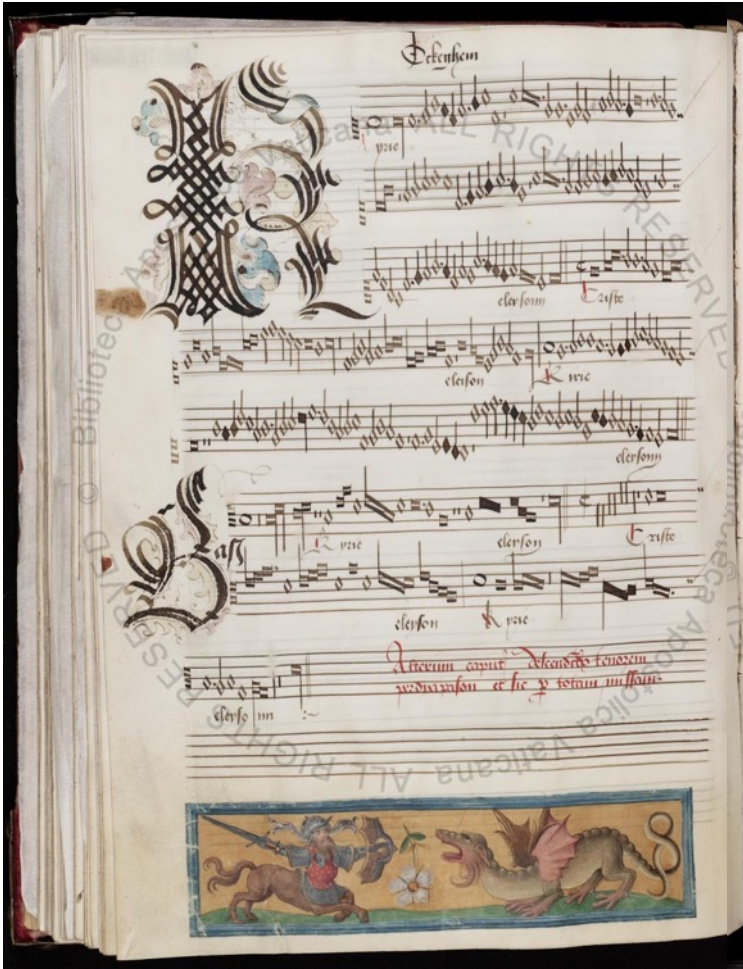 Ockeghem
Kyrie
eleysonn Criste
eleison Kyrie
eleysonn
Bassus
Kyrie eleyson Criste
eleyson Kyrie
Alterum caput descendendo tenorem
per dyapason et sic per totam missam
eleysonn
© Biblioteca Apostolica Vaticana ALL RIGHTS RESERVED